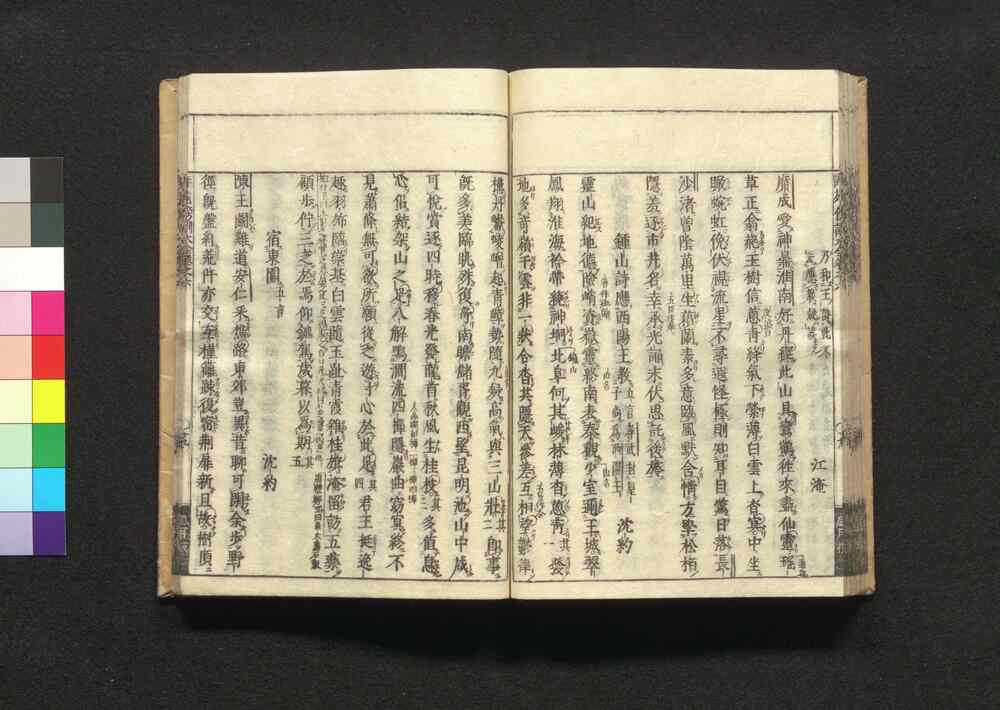 江淹
廣成愛神鼎淮南好丹經此山具鸞鶴徃來盡仙靈瑤
草正翕赩玉樹信葱青絳氣下縈薄白雲上杳冥中坐
瞰蜿虹俛伏視流星不尋遐怪極則知耳目驚日落長
沙渚曾陰萬里生藉蘭素多意臨風默含情方學松栢
隱羞逐市井名幸承光誦末伏思託後旌
鍾山詩應西陽王教 沈約
靈山紀地德險峭資嶽靈終南表秦觀少室邇王城翠
鳳翔淮海衿帶繞神坰北阜何其峻林薄杳葱青其一發
地多奇嶺干雲非一狀合沓共隱天參差互相望鬱律
構丹巘崚嶒起青嶂勢隨九疑高氣與三山壯其二即事
既多美臨眺殊復奇南瞻儲胥觀西望昆明池山中咸
可悅賞逐四時移春光發隴首秋風生桂枝其三多值息
心侶結架山之足八解鳴澗流四禪隱巖曲窈冥終不
見蕭條無可欲所願從之遊寸心於此足其四君王挺逸
趣羽斾臨崇基白雲隨玉趾青霞雜桂旗淹留訪五藥
顧步佇三芝於焉仰鑣駕歲暮以爲期其五
宿東園五言 沈約
陳王鬬雞道安仁采樵路東郊豈異昔聊可閑余步野
徑既盤紆荒阡亦交互槿籬踈復密荊扉新且故樹頂